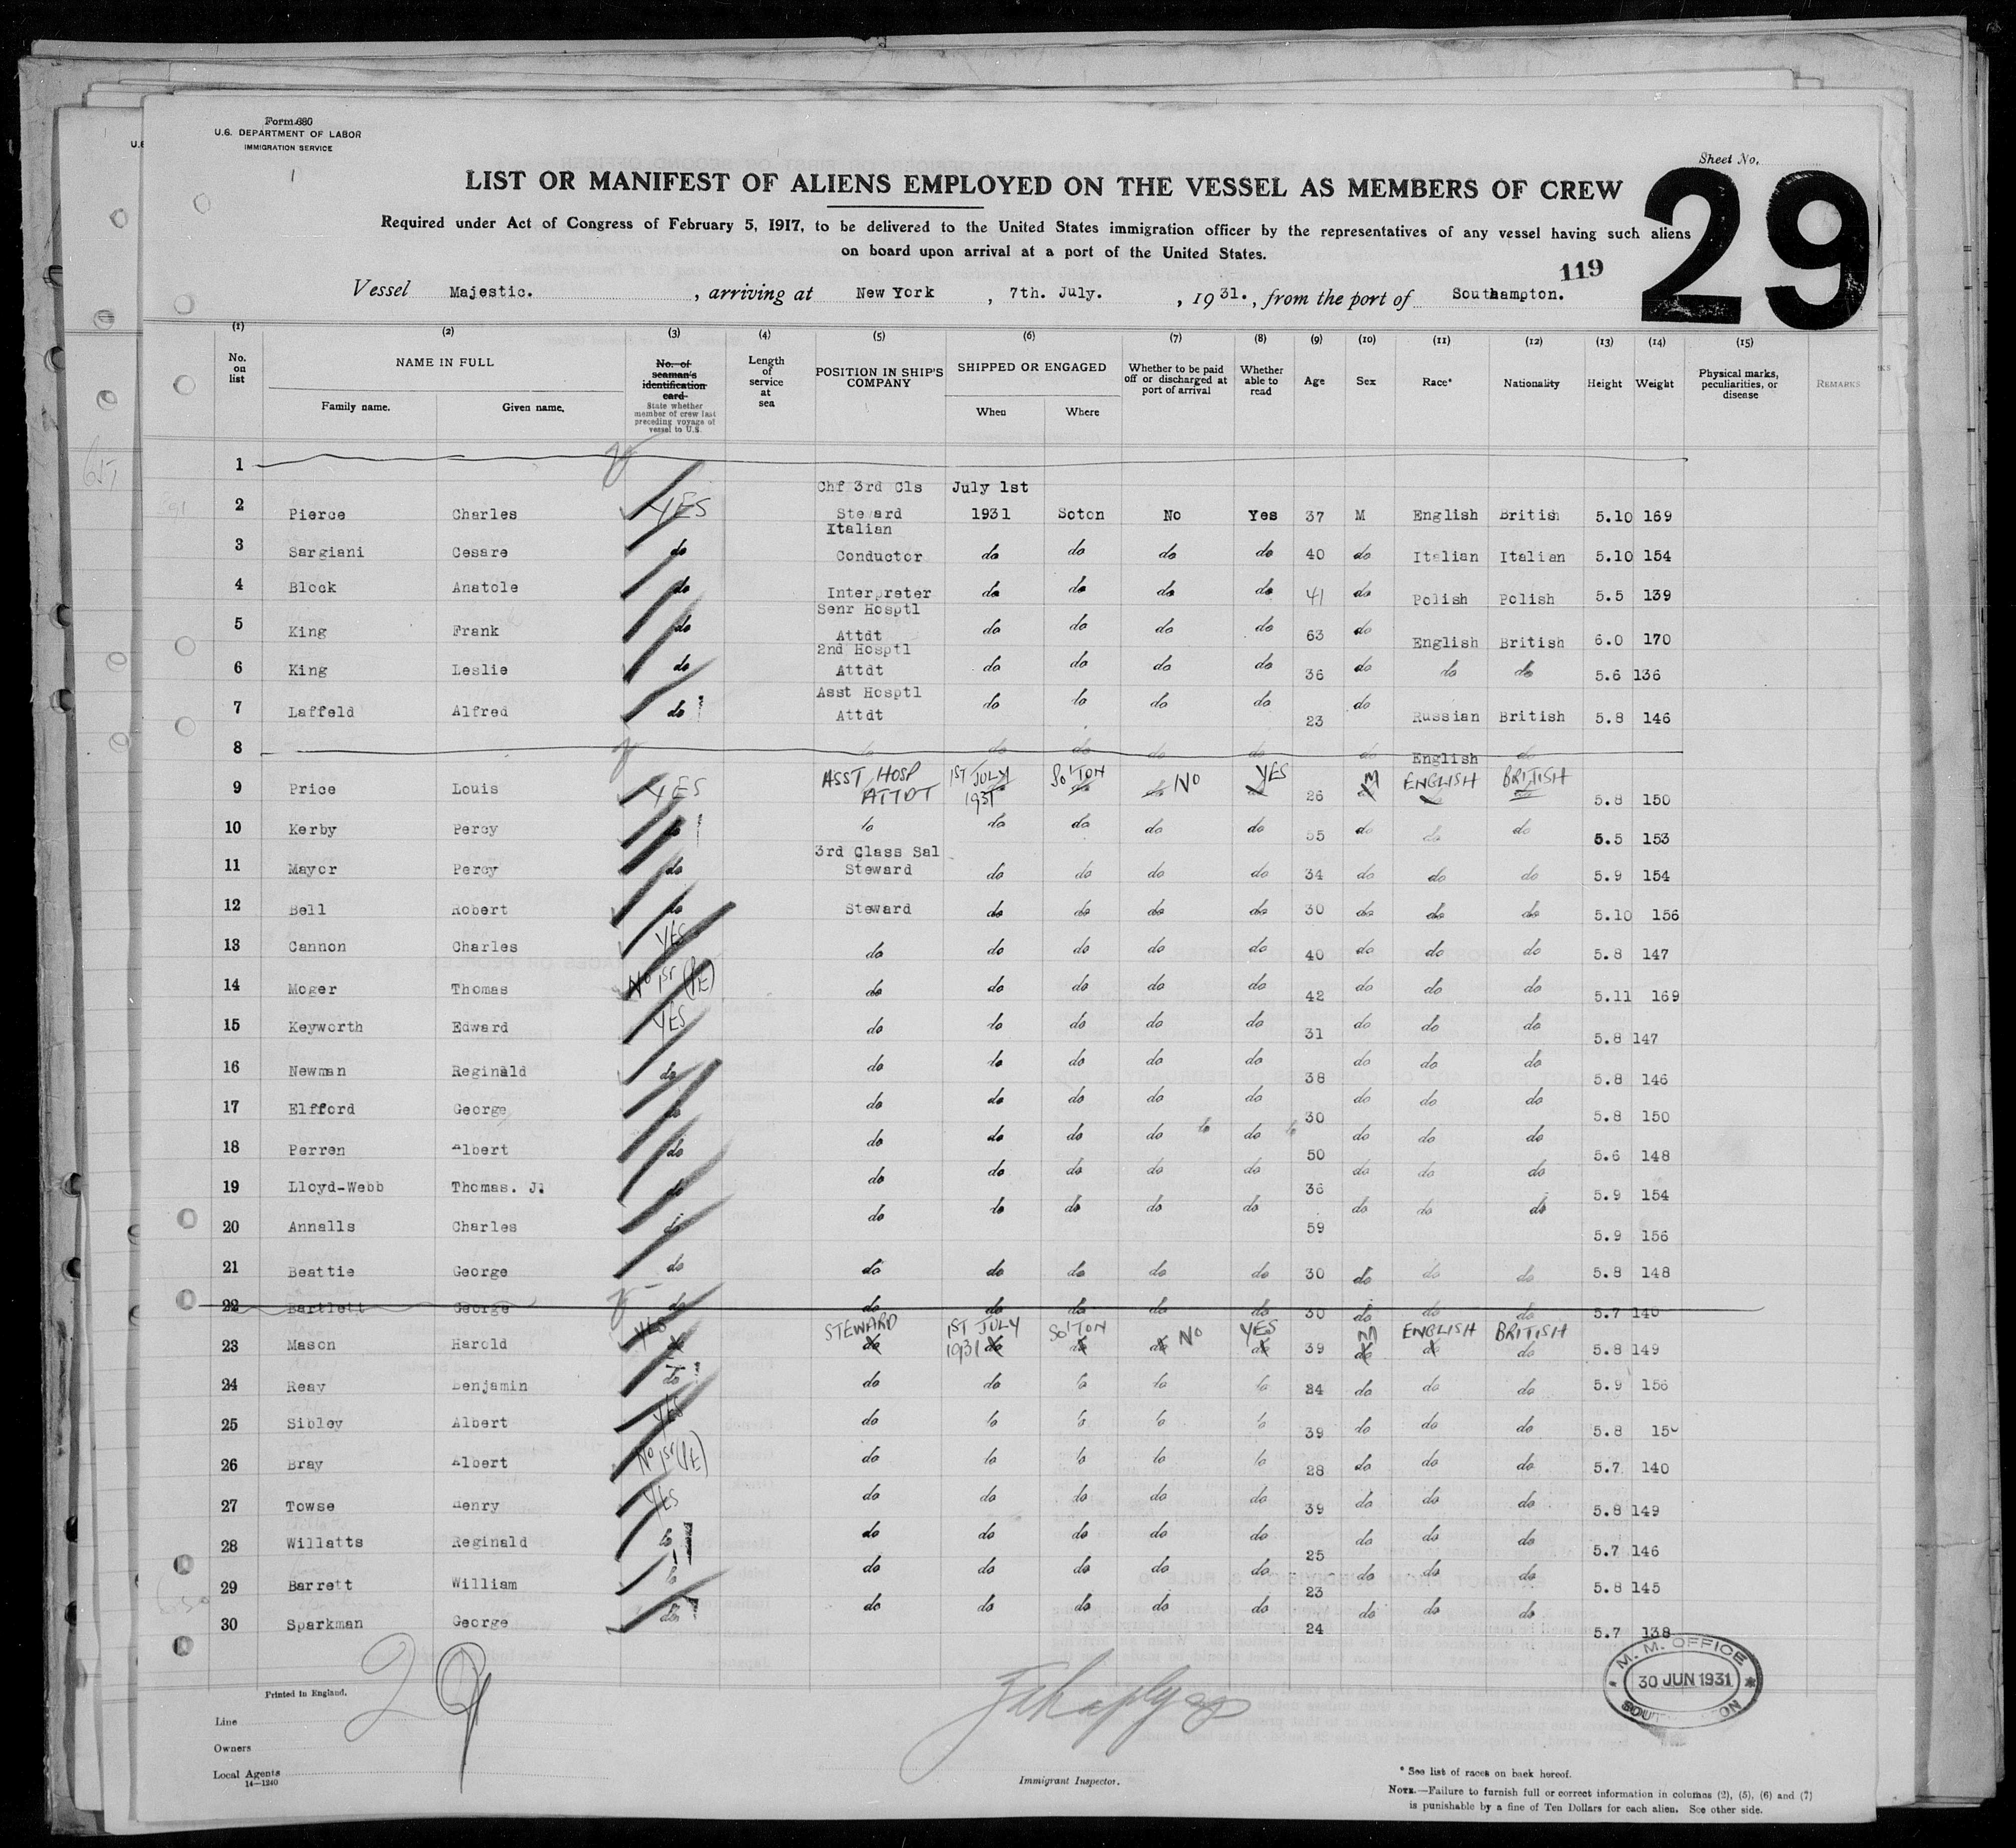 Form 680
U.S. DEPARTMENT OF LABOR
IMMIGRATION SERVICE
1
Sheet No.
29
LIST OR MANIFEST OF ALIENS EMPLOYED ON THE VESSEL AS MEMBERS OF CREW
Required under Act of Congress of February 5, 1917, to be delivered to the United States immigration officer by the representatives of any vessel having such aliens
on board upon arrival at a port of the United States.
119
Vessel Majestic. , arriving at New York , 7th. July. , 1931. , from the port of Southampton.
(1) (2) (3) (4) (5) (6) (7) (8) (9) (10) (11) (12) (13) (14) (15)
No. on list NAME IN FULL Family name. Given name. No. of seaman's identification card State whether member of crew last preceding voyage of vessel to U.S. Length of service at sea POSITION IN SHIP'S COMPANY SHIPPED OR ENGAGED When Where Whether to be paid off or discharged at port of arrival Whether able to read Age Sex Race* Nationality Height Weight Physical marks, peculiarities, or disease REMARKS
1
2 Pierce Charles YES Chf 3rd Cls Steward July 1st 1931 Soton No Yes 37 M English British 5.10 169
3 Sargiani Cesare do Italian Conductor do do do do 40 do Italian Italian 5.10 154
4 Block Anatole do Interpreter do do do do 41 do Polish Polish 5.5 139
5 King Frank do Senr Hosptl Attdt do do do do 63 do English British 6.0 170
6 King Leslie do 2nd Hosptl Attdt do do do do 36 do do do 5.6 136
7 Laffeld Alfred do Asst Hosptl Attdt do do do do 23 do Russian British 5.8 146
8 do do do do do do English do
9 Price Louis YES ASST HOSP ATTDT 1ST JULY 1931 So'TON No YES 26 M ENGLISH BRITISH 5.8 150
10 Kerby Percy do do do do do do 55 do do do 5.5 153
11 Mayor Percy do 3rd Class Sal Steward do do do do 34 do do do 5.9 154
12 Bell Robert do Steward do do do do 30 do do do 5.10 156
13 Cannon Charles YES do do do do do 40 do do do 5.8 147
14 Moger Thomas No 1st (PE) do do do do do 42 do do do 5.11 169
15 Keyworth Edward YES do do do do do 31 do do do 5.8 147
16 Newman Reginald do do do do do do 38 do do do 5.8 146
17 Elfford George do do do do do do 30 do do do 5.8 150
18 Perren Albert do do do do do do 50 do do do 5.6 148
19 Lloyd-Webb Thomas. J. do do do do do do 36 do do do 5.9 154
20 Annalls Charles do do do do do do 59 do do do 5.9 156
21 Beattie George do do do do do do 30 do do do 5.8 148
22 Bartlett George do do do do do do 30 do do do 5.7 140
23 Mason Harold YES STEWARD 1ST JULY 1931 So'TON No YES 39 M ENGLISH BRITISH do 5.8 149
24 Reay Benjamin do do do do do do 24 do do do 5.9 156
25 Sibley Albert YES do do do do do 39 do do do 5.8
26 Bray Albert No 1st (PE) do do do do do 28 do do do 5.7 140
27 Towse Henry YES do do do do do 39 do do do 5.8 149
28 Willatts Reginald do do do do do do 25 do do do 5.7 146
29 Barrett William do do do do do do 23 do do do 5.8 145
30 Sparkman George do do do do do do 24 do do do 5.7 138
29
M. M. OFFICE
30 JUN 1931
Printed in England.
Line
Owners
Local Agents
14—1240
Immigrant Inspector.
* See list of races on back hereof.
NOTE.—Failure to furnish full or correct information in columns (2), (5), (6) and (7)
is punishable by a fine of Ten Dollars for each alien. See other side.